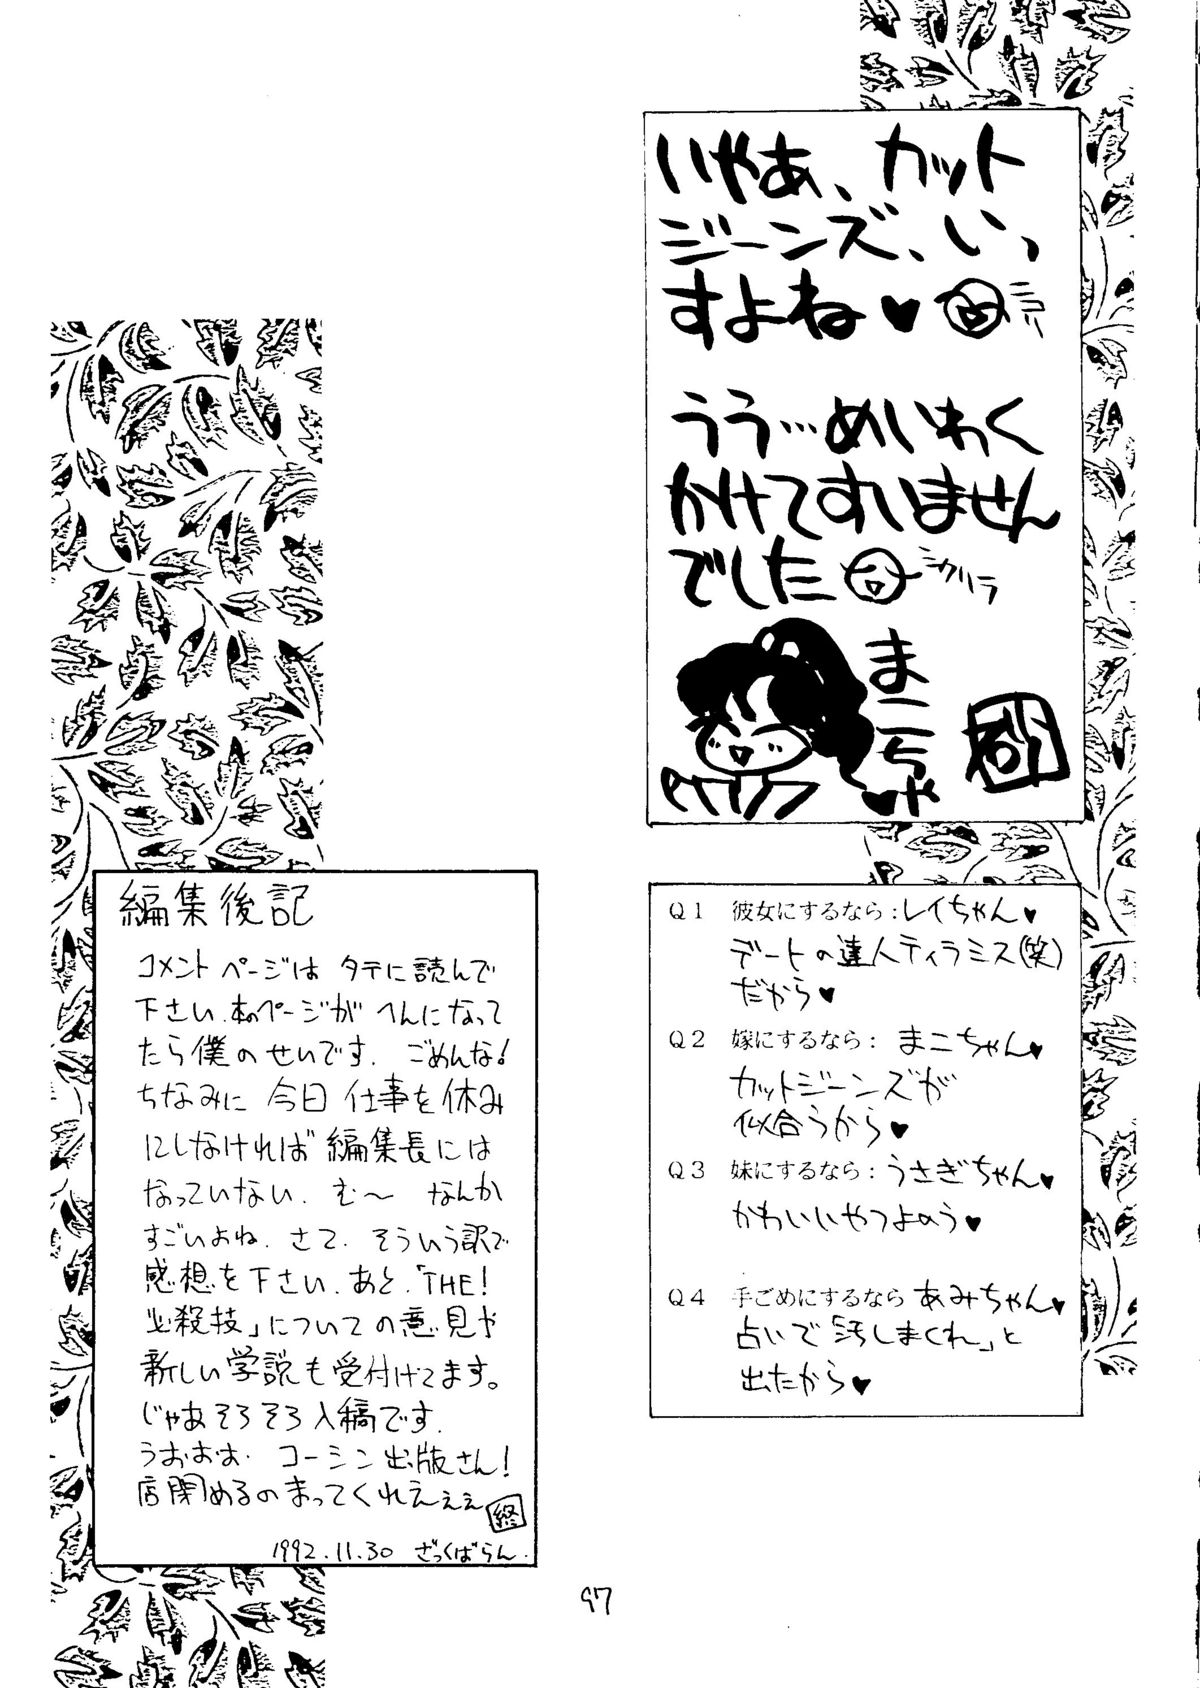 いやあ、カット
ジーンズ、いっ
すよね♥
うう…めいわく
かけてすいません
でした シクリラ
まこちゃ
Q1 彼女にするなら:レイちゃん♥
デートの達人ティラミス(笑)
だから♥
Q2 嫁にするなら: まこちゃん♥
カットジーンズが
似合うから♥
Q3 妹にするなら:うさぎちゃん♥
かわいいやつよのう♥
Q4 手ごめにするなら あみちゃん♥
占いで「汚しまくれ」と
出たから♥
編集後記
コメントページは タテに読んで
下さい.本のページが へんになって
たら僕のせいです. ごめんな!
ちなみに 今日 仕事を休み
にしなければ 編集長には
なっていない. む〜 なんか
すごいよね. さて. そういう訳で
感想を下さい.あと.「THE!
必殺技」についての意見や
新しい学説も受付けてます。
じゃあそろそろ入稿です.
うおおお. コーシン出版さん!
店閉めるのまってくれえぇぇ 終
1992.11.30 ざっくばらん.
97